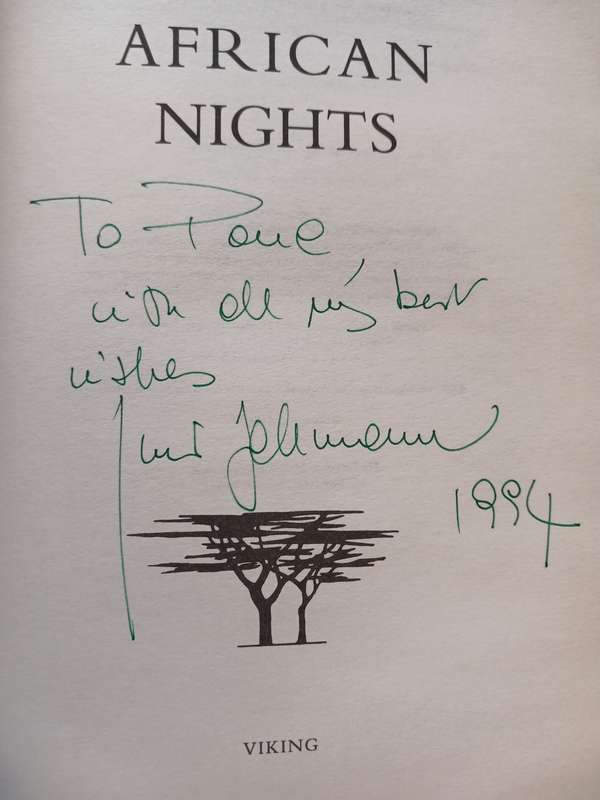 AFRICAN
NIGHTS
To
with all my best
wishes
Kuki Gallmann
1994
VIKING